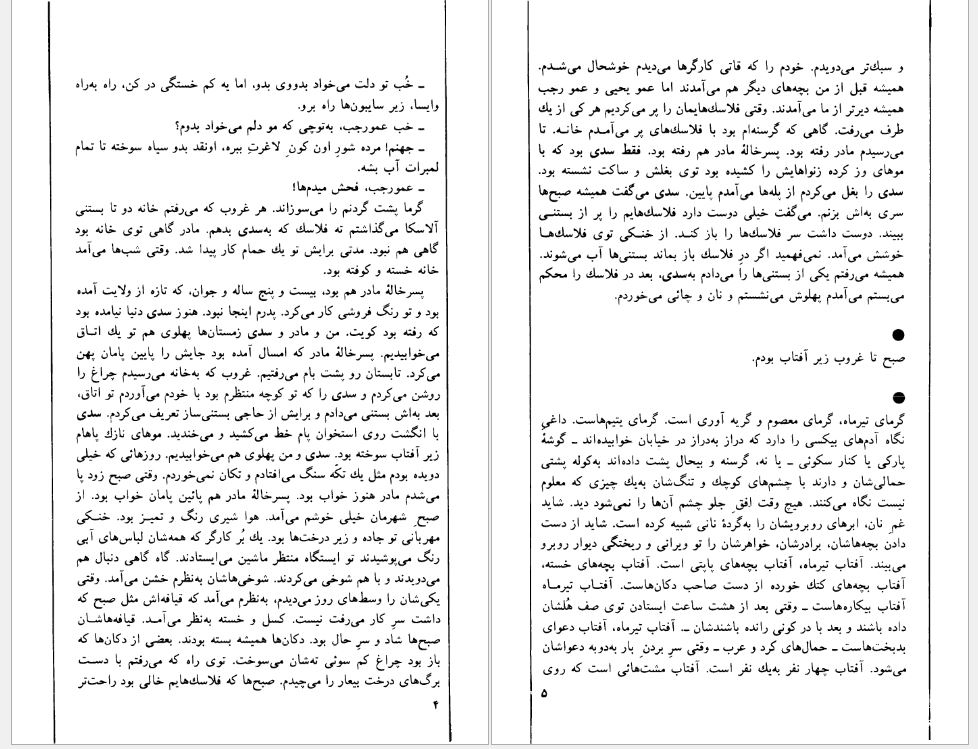 ـ خُب تو دلت می‌خواد بدووی بدو، اما یه کم خستگی در کن، راه به‌راه
وایسا، زیر سایبون‌ها راه برو.
ـ خب عمورجب، به‌توچی که مو دلم می‌خواد بدوم؟
ـ جهنم! مرده شورِ اون کونِ لاغرتِ ببره، اونقد بدو سیاه سوخته تا تمام
لمبرات آب بشه.
ـ عمورجب، فحش میدم‌ها!
گرما پشت گردنم را می‌سوزاند. هر غروب که می‌رفتم خانه دو تا بستنی
آلاسکا می‌گذاشتم ته فلاسك که به‌سدی بدهم. مادر گاهی توی خانه بود
گاهی هم نبود. مدتی برایش تو یك حمام کار پیدا شد. وقتی شب‌ها می‌آمد
خانه خسته و کوفته بود.
پسرخالهٔ مادر هم بود، بیست و پنج ساله و جوان، که تازه از ولایت آمده
بود و تو رنگ فروشی کار می‌کرد. پدرم اینجا نبود. هنوز سدی دنیا نیامده بود
که رفته بود کویت. من و مادر و سدی زمستان‌ها پهلوی هم تو یك اتـاق
می‌خوابیدیم. پسرخالهٔ مادر که امسال آمده بود جایش را پایین پامان پهن
می‌کرد. تابستان رو پشت بام می‌رفتیم. غروب که به‌خانه می‌رسیدم چراغ را
روشن می‌کردم و سدی را که تو کوچه منتظرم بود با خودم می‌آوردم تو اتاق،
بعد به‌اش بستنی می‌دادم و برایش از حاجی بستنی‌ساز تعریف می‌کردم. سدی
با انگشت روی استخوان پام خط می‌کشید و می‌خندید. موهای نازك پاهام
زیر آفتاب سوخته بود. سدی و من پهلوی هم می‌خوابیدیم. روزهائی که خیلی
دویده بودم مثل یك تکّه سنگ می‌افتادم و تکان نمی‌خوردم. وقتی صبح زود پا
می‌شدم مادر هنوز خواب بود. پسرخالهٔ مادر هم پائین پامان خواب بود. از
صبحِ شهرمان خیلی خوشم می‌آمد. هوا شیری رنگ و تمیـز بود. خنـکی
مهربانی تو جاده و زیر درخت‌ها بود. یك بُر کارگر که همه‌شان لباس‌های آبی
رنگ می‌پوشیدند تو ایستگاه منتظر ماشین می‌ایستادند. گاه گاهی دنبال هم
می‌دویدند و با هم شوخی می‌کردند. شوخی‌هاشان به‌نظرم خشن می‌آمد. وقتی
یکی‌شان را وسط‌های روز می‌دیدم، به‌نظرم می‌آمد که قیافه‌اش مثل صبح که
داشت سر کار می‌رفت نیست. کسل و خسته به‌نظر می‌آمـد. قیافه‌هاشـان
صبح‌ها شاد و سرِ حال بود. دکان‌ها همیشه بسته بودند. بعضی از دکان‌ها که
باز بود چراغ کم سوئی ته‌شان می‌سوخت. توی راه که می‌رفتم با دسـت
برگ‌های درخت بیعار را می‌چیدم. صبح‌ها که فلاسك‌هایم خالی بود راحت‌تر
۴
و سبك‌تر می‌دویدم. خودم را که قاتی کارگرها می‌دیدم خوشحال می‌شـدم.
همیشه قبل از من بچه‌های دیگر هم می‌آمدند اما عمو یحیی و عمو رجب
همیشه دیرتر از ما می‌آمدند. وقتی فلاسك‌هایمان را پر می‌کردیم هر کی از یك
طرف می‌رفت. گاهی که گرسنه‌ام بود با فلاسك‌های پر می‌آمـدم خانـه. تا
می‌رسیدم مادر رفته بود. پسرخالهٔ مادر هم رفته بود. فقط سدی بود که با
موهای وز کرده زنواهایش را کشیده بود توی بغلش و ساکت نشسته بود.
سدی را بغل می‌کردم از پله‌ها می‌آمدم پایین. سدی می‌گفت همیشه صبح‌ها
سری به‌اش بزنم. می‌گفت خیلی دوست دارد فلاسك‌هایم را پر از بستنـی
ببیند. دوست داشت سر فلاسك‌ها را باز کنـد. از خنـکی توی فلاسك‌هـا
خوشش می‌آمد. نمی‌فهمید اگر درِ فلاسك باز بماند بستنی‌ها آب می‌شوند.
همیشه می‌رفتم یکی از بستنی‌ها را می‌دادم به‌سدی، بعد در فلاسك را محکم
می‌بستم می‌آمدم پهلوش می‌نشستم و نان و چائی می‌خوردم.
●
صبح تا غروب زیر آفتاب بودم.
●
گرمای تیرماه، گرمای معصوم و گریه آوری است. گرمای یتیم‌هاست. داغیِ
نگاه آدم‌های بیکسی را دارد که دراز به‌دراز در خیابان خوابیده‌اند ـ گوشهٔ
پارکی یا کنار سکوئی ـ یا نه، گرسنه و بیحال پشت داده‌اند به‌کوله پشتی
حمالی‌شان و دارند با چشم‌های کوچك و تنگ‌شان به‌یك چیزی که معلوم
نیست نگاه می‌کنند. هیچ وقت اِفقِ جلو چشم آن‌ها را نمی‌شود دید. شاید
غمِ نان، ابرهای روبرویشان را به‌گردهٔ نانی شبیه کرده است. شاید از دست
دادن بچه‌هاشان، برادرشان، خواهرشان را تو ویرانی و ریختگی دیوار روبرو
می‌بیند. آفتاب تیرماه، آفتاب بچه‌های پاپتی است. آفتاب بچه‌های خسته،
آفتاب بچه‌های کتك خورده از دست صاحب دکان‌هاست. آفتـاب تیرمـاه
آفتاب بیکاره‌هاست ـ وقتی بعد از هشت ساعت ایستادن توی صف هُلشان
داده باشند و بعد با در کونی رانده باشندشان ـ. آفتاب تیرماه، آفتاب دعوای
بدبخت‌هاست ـ حمال‌های کرد و عرب ـ وقتی سرِ بردنِ بار به‌دوبه دعواشان
می‌شود. آفتاب چهار نفر به‌یك نفر است. آفتاب مشت‌هائی است که روی
۵